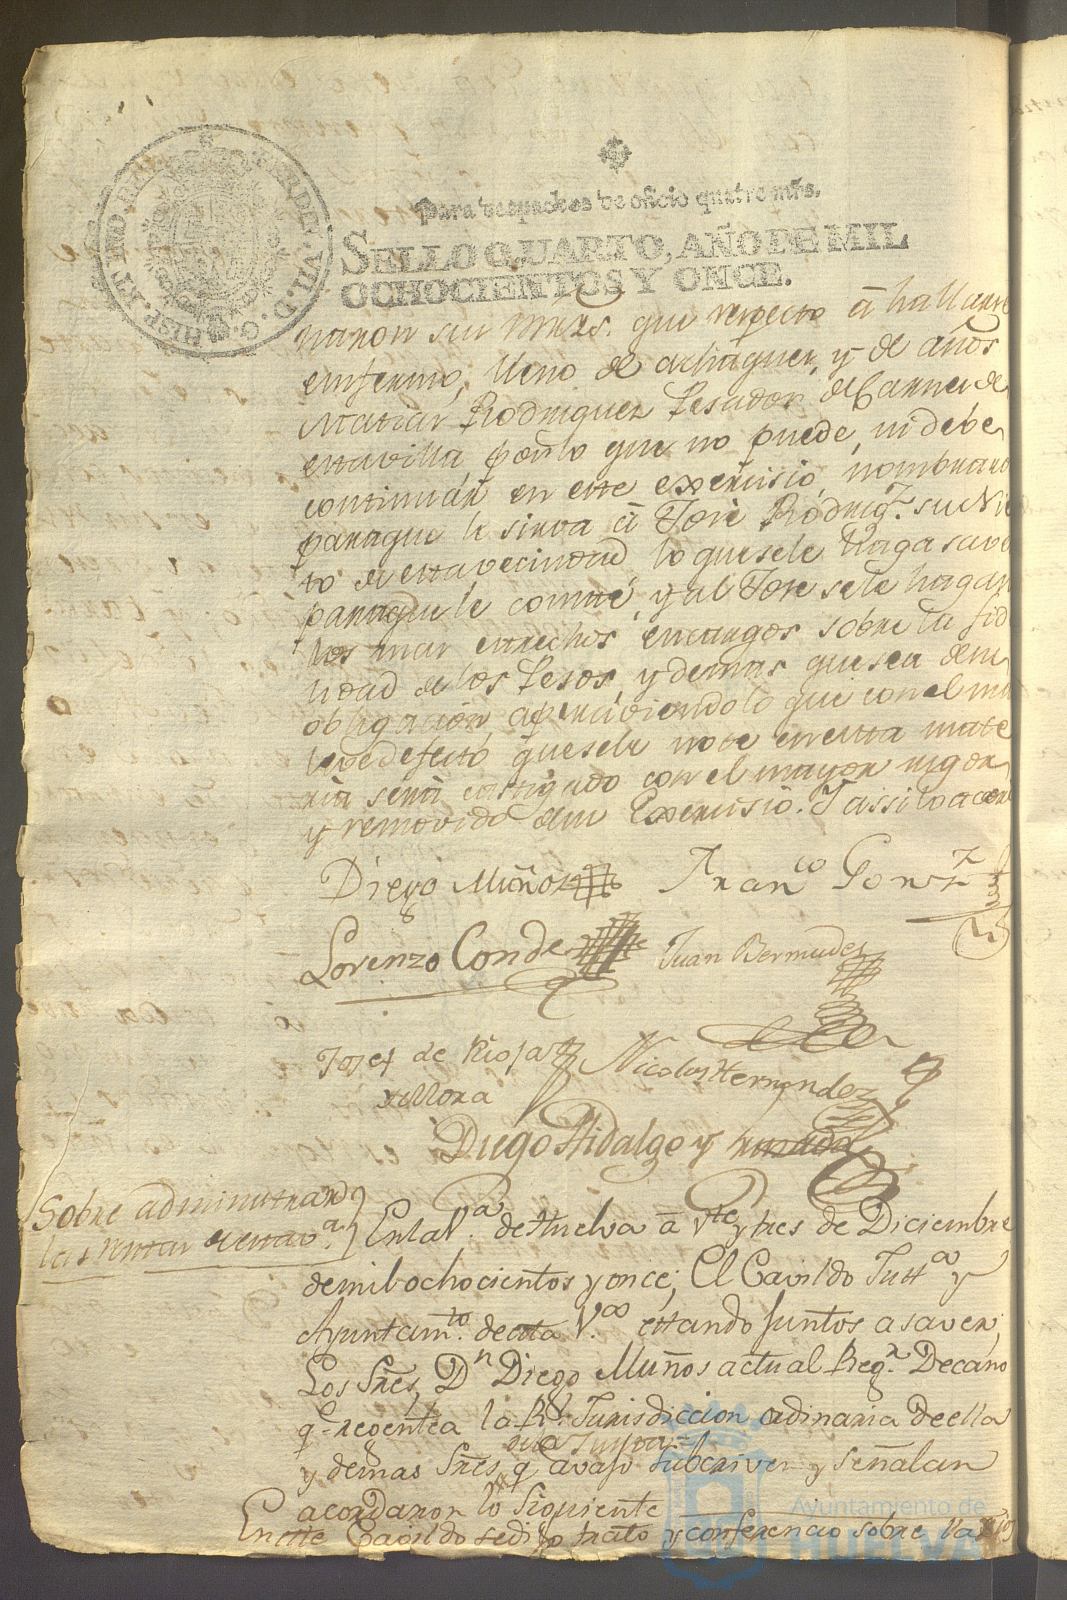 Para despachos de oficio quatro mrs.
SELLO QUARTO, AÑO DE MIL
OCHOCIENTOS Y ONCE.
naron sus mrzs. que respecto â hallarse
enfermo, lleno de achaques, y de años
Matias Rodriguez Pesador de Carnes de
esta villa por lo que no puede, ni debe
continuar en este exercisio, nombraro
paraque le sirva â José Rodrigz. su Nie
to de esta vecindad lo que se le haga savr
paraque le conste, y al José se le hagan
los mas estrechos encargos sobre la fid
lidad de los Pesos, y demas que sea de su
obligacion, apercividndolo que con el ma
leve defecto que se le note en esta mate
ria será castigado con el mayor rigor
y removido de su Exercisio. Y assi lo acor
Diego Muñoz Franco Gonz
Lorenzo Conde Juan Bermudez
Josef de Rioja
Mora
Nicolas Hernandez
Diego Hidalgo y
Sobre administrar
las rentas de esta va.
En la Va. de Huelva â vte y tres de Diciembre
de mil ochocientos y once; El Cavildo Justa y
Ayuntamto. de esta Va. estando juntos a saver,
Los Sres. Dn Diego Muños actual Regr. Decano
q. regentea la Rl. Jurisdiccion ordinaria de ella
y demas Sres q avajo subcriven y señalan
acordaron lo siguiente
En este Cavildo se dijo trato y conferencio sobre
Ayuntamiento de
HUELVA